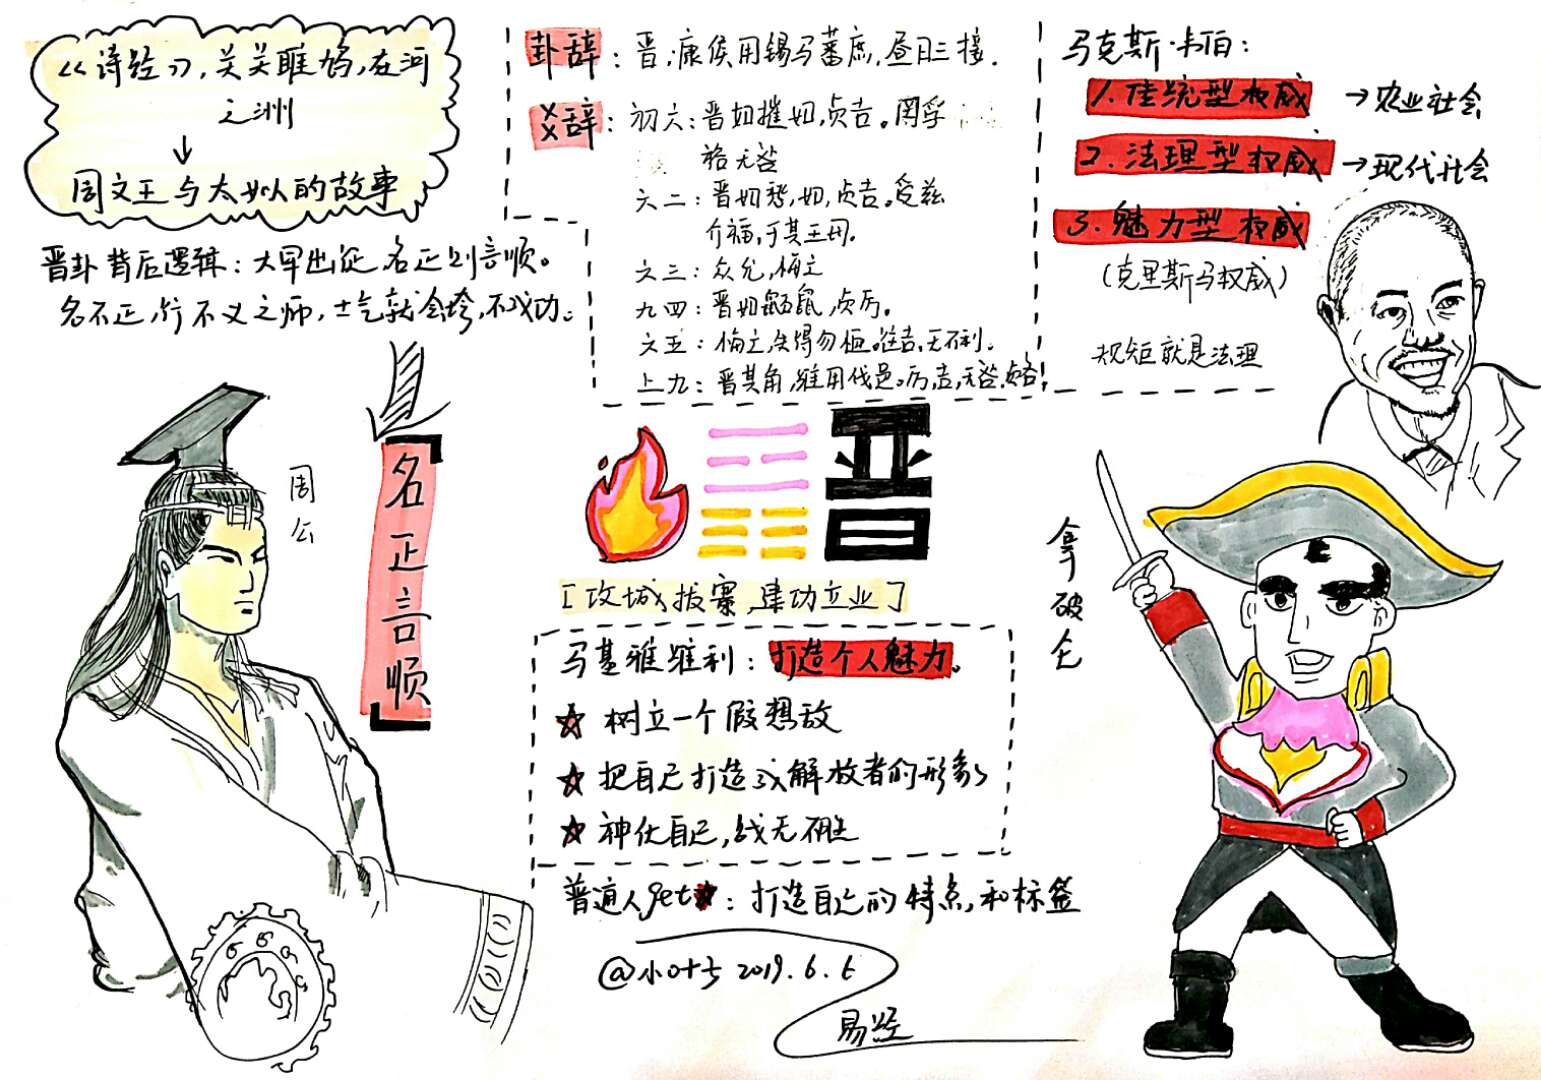 《诗经》,关关雎鸠,在河
之洲
↓
周文王与太姒的故事
晋卦背后逻辑:大军出征,名正则言顺。
名不正,行不义之师,士气就会垮,不成功。
名正言顺
周公
卦辞:晋,康侯用锡马蕃庶,昼日三接.
爻辞:初六:晋如摧如,贞吉。罔孚
裕无咎
六二:晋如愁,如,贞吉。受兹
介福,于其王母.
六三:众允,悔亡
九四:晋如鼫鼠,贞厉。
六五:悔亡,失得勿恤。往吉,无不利.
上九:晋其角,维用伐邑。厉,吉,无咎.贞吝!
马克斯·韦伯:
1.传统型权威 →农业社会
2.法理型权威 →现代社会
3.魅力型权威
(克里斯马权威)
规矩就是法理
晋
[攻城拔寨,建功立业]
马基雅维利:打造个人魅力。
☆树立一个假想敌
☆把自己打造成解放者的形象
☆神化自己,战无不胜
普通人get:打造自己的特点和标签
@小叶子 2019.6.6
易经
拿破仑